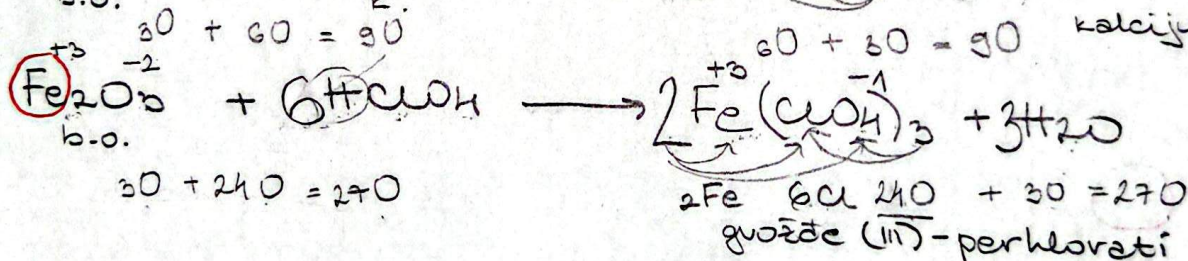 3O + 6O = 9O
6O + 3O = 9O
+3 -2 +3 -1
Fe2O3 + 6HClO4 → 2Fe(ClO4)3 + 3H2O
b.o.
3O + 24O = 27O
2Fe 6Cl 24O + 3O = 27O
gvožđe (III)-perhlorati